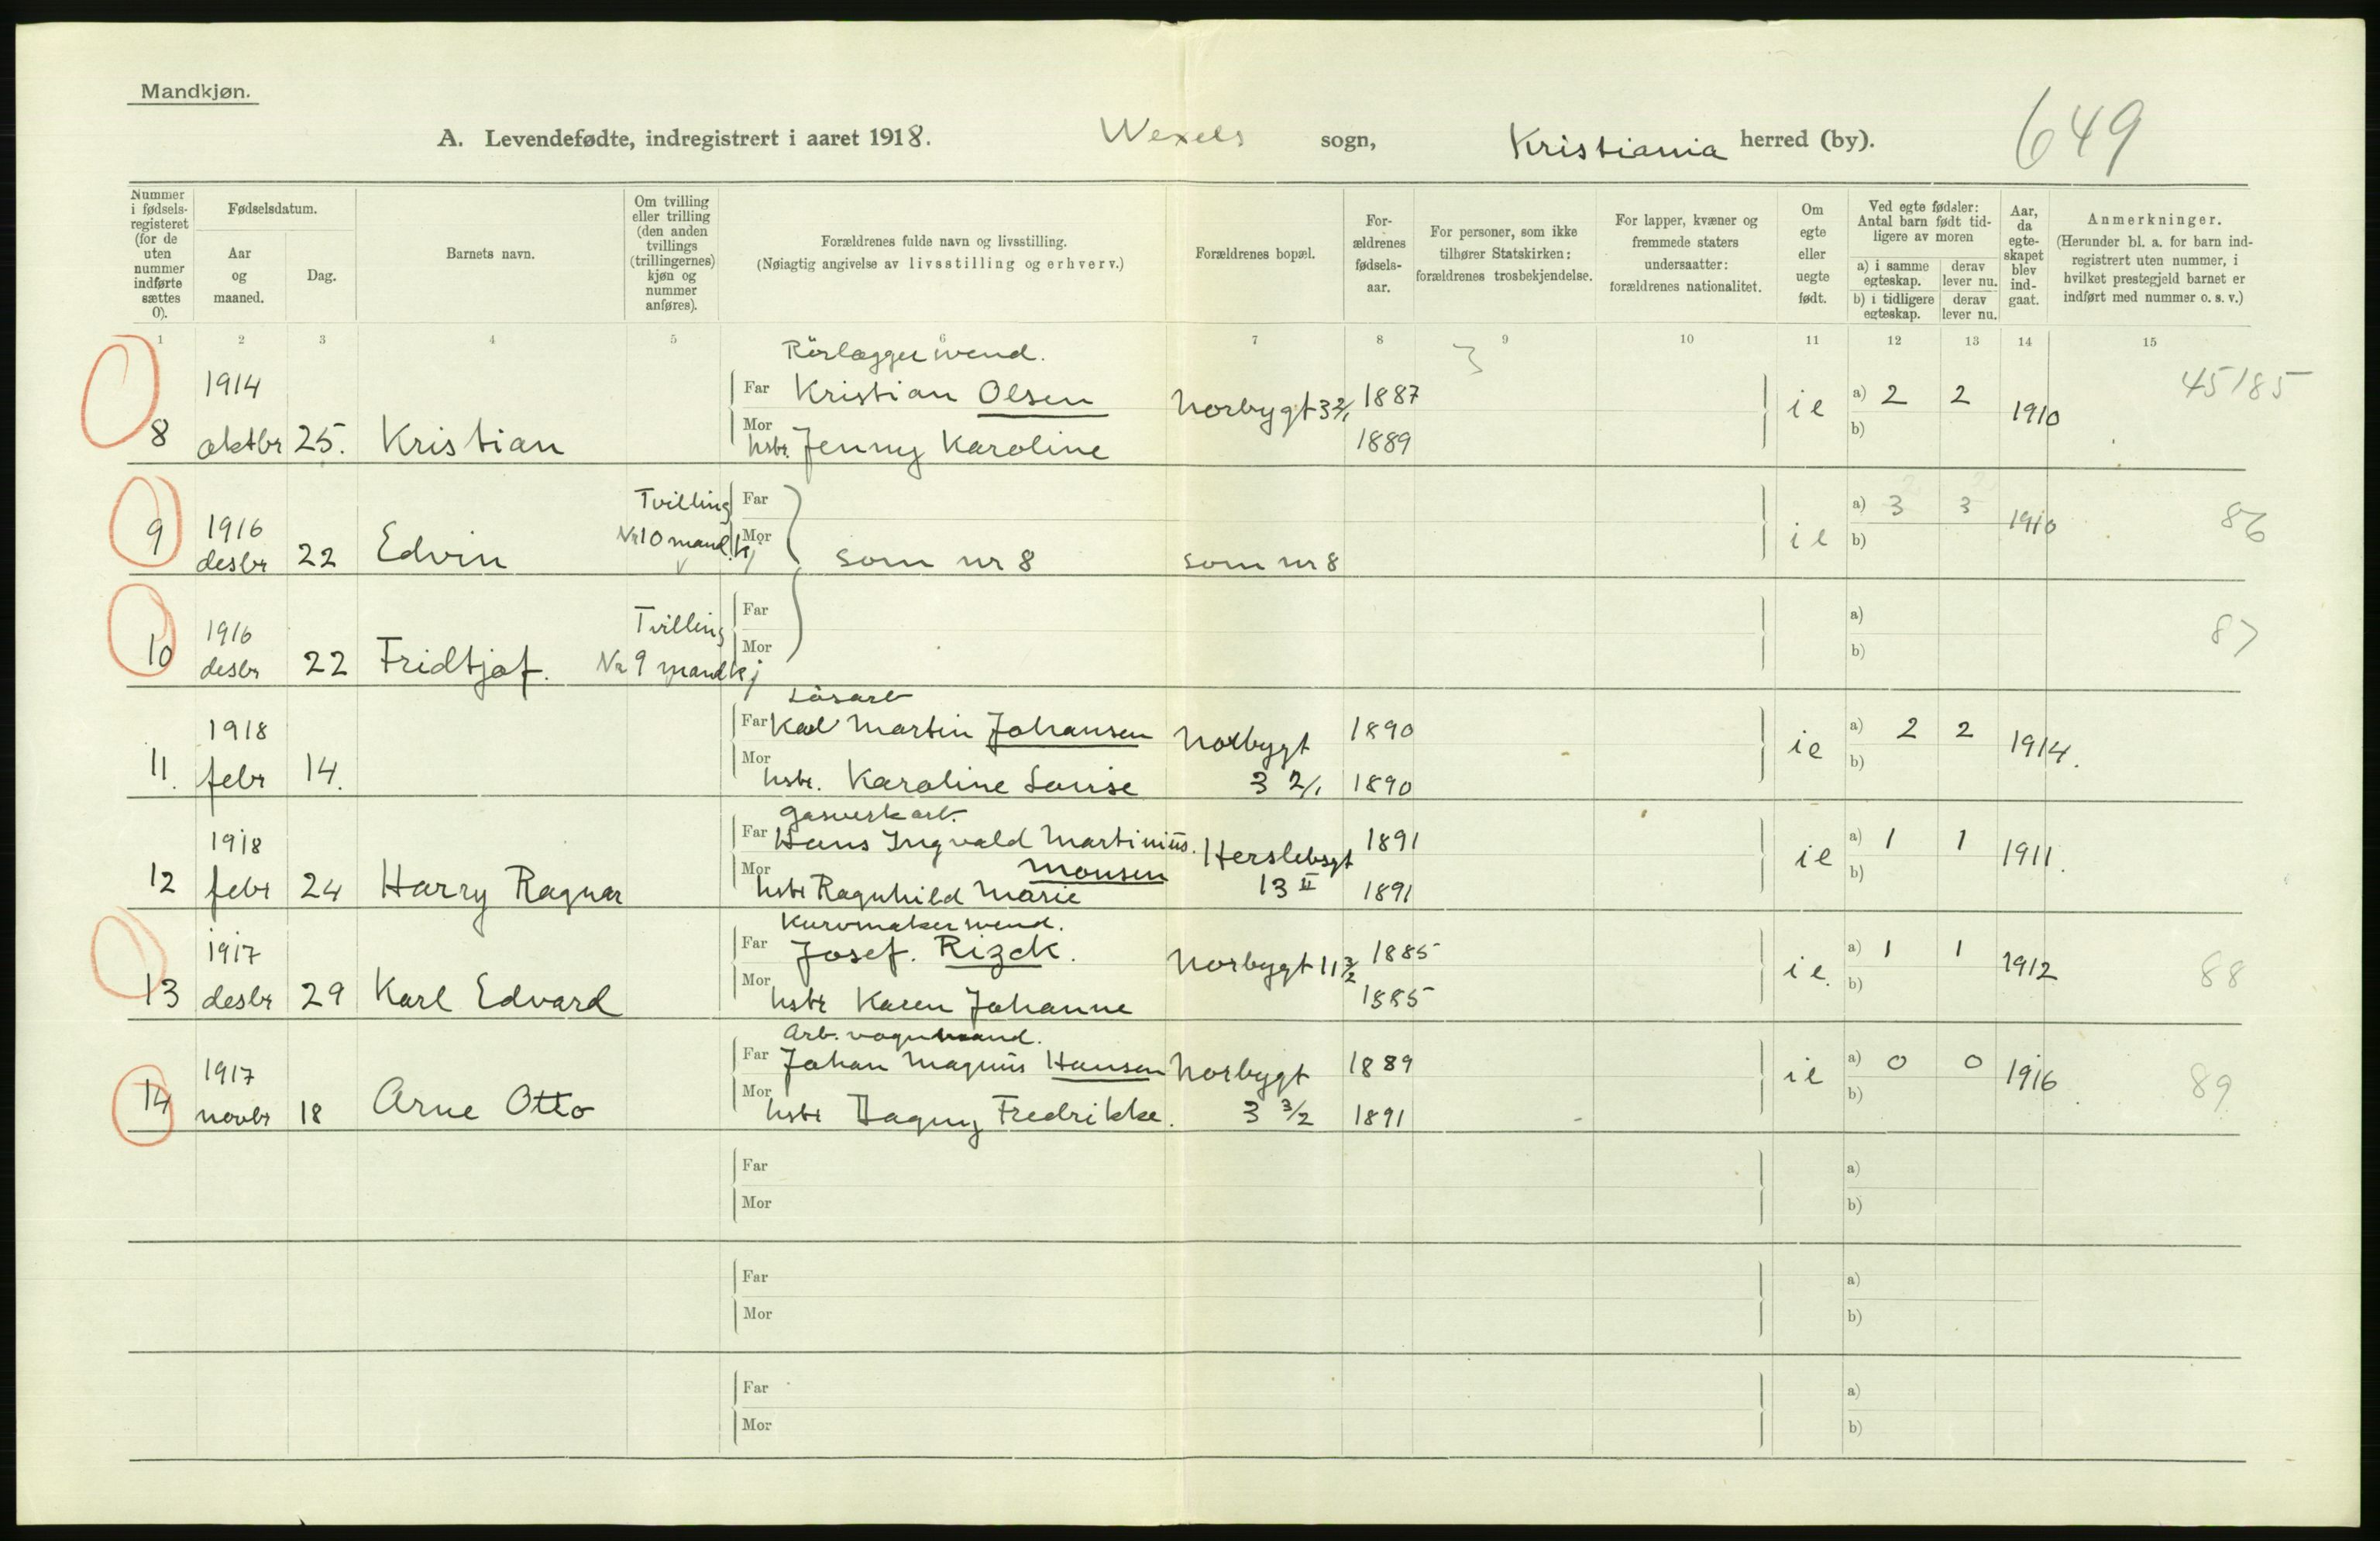 Mandkjøn.
A. Levendefødte, indregistrert i aaret 1918. Wexels sogn, Kristiania herred (by). 649
Nummer i fødsels-registeret (for de uten nummer indførte sættes 0).
Fødselsdatum.
Aar og maaned.
Dag.
Barnets navn.
Om tvilling eller trilling (den anden tvillings (trillingernes) kjøn og nummer anføres).
Forældrenes fulde navn og livsstilling.
(Nøiagtig angivelse av livsstilling og erhverv.)
Forældrenes bopæl.
For-ældrenes fødsels-aar.
For personer, som ikke tilhører Statskirken: forældrenes trosbekjendelse.
For lapper, kvæner og fremmede staters undersaatter: forældrenes nationalitet.
Om egte eller uegte født.
Ved egte fødsler: Antal barn født tid-ligere av moren
a) i samme egteskap.
derav lever nu.
b) i tidligere egteskap.
derav lever nu.
Aar, da egte-skapet blev ind-gaat.
Anmerkninger.
(Herunder bl. a. for barn ind-registrert uten nummer, i hvilket prestegjeld barnet er indført med nummer o. s. v.)
1 2 3 4 5 6 7 8 9 10 11 12 13 14 15
Rörlæggersvend. 3
1914 Far Kristian Olsen Norbygt 3 2/1 1887 ie a) 2 2 1910 45185
8 oktbr 25. Kristian Mor hstr. Jenny Karoline 1889 b)
1916 Tvilling Far a) 3 3 1910 86
9 desbr 22 Edvin Nr 10 mandkj Mor som nr 8 som nr 8 ie b)
1916 Tvilling Far a) 87
10 desbr 22 Fridtjof. Nr 9 mandkj Mor b)
Løsarb
1918 Far Karl Martin Johansen Norbygt 1890 ie a) 2 2 1914.
11. febr 14. Mor hstr. Karoline Louise 3 2/1 1890 b)
Gasverkarb.
1918 Far Hans Ingvald Martinius Herslebsgt 1891 ie a) 1 1 1911.
Monsen
12 febr 24 Harry Ragnar Mor hstr Ragnhild Marie 13 II 1891 b)
Kurvmakersvend.
1917 Far Josef. Rizek. Norbygt 11 3/2 1885 ie. a) 1 1 1912 88
13 desbr 29 Karl Edvard Mor hstr Karen Johanne 1885 b)
Arb. vognmand.
1917 Far Johan Magnus Hansen Norbygt 1889 ie a) 0 0 1916 89
14 novbr 18 Arne Otto Mor hstr Dagny Fredrikke. 3 3/2 1891 b)
Far a)
Mor b)
Far a)
Mor b)
Far a)
Mor b)